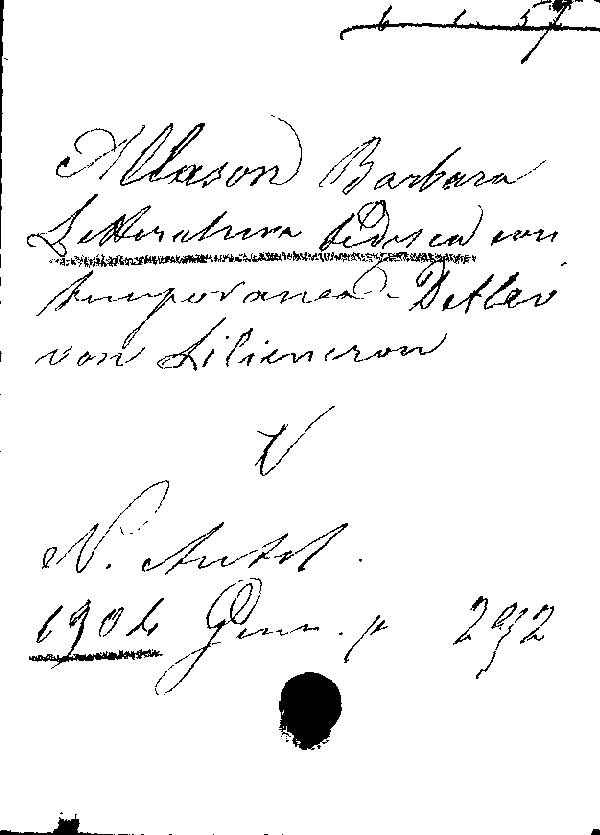 6 1 57
Allason Barbara
Letteratura tedesca con
temporanea - Detlev
von Liliencron
V
N. Antol.
1904 Genn. p 292